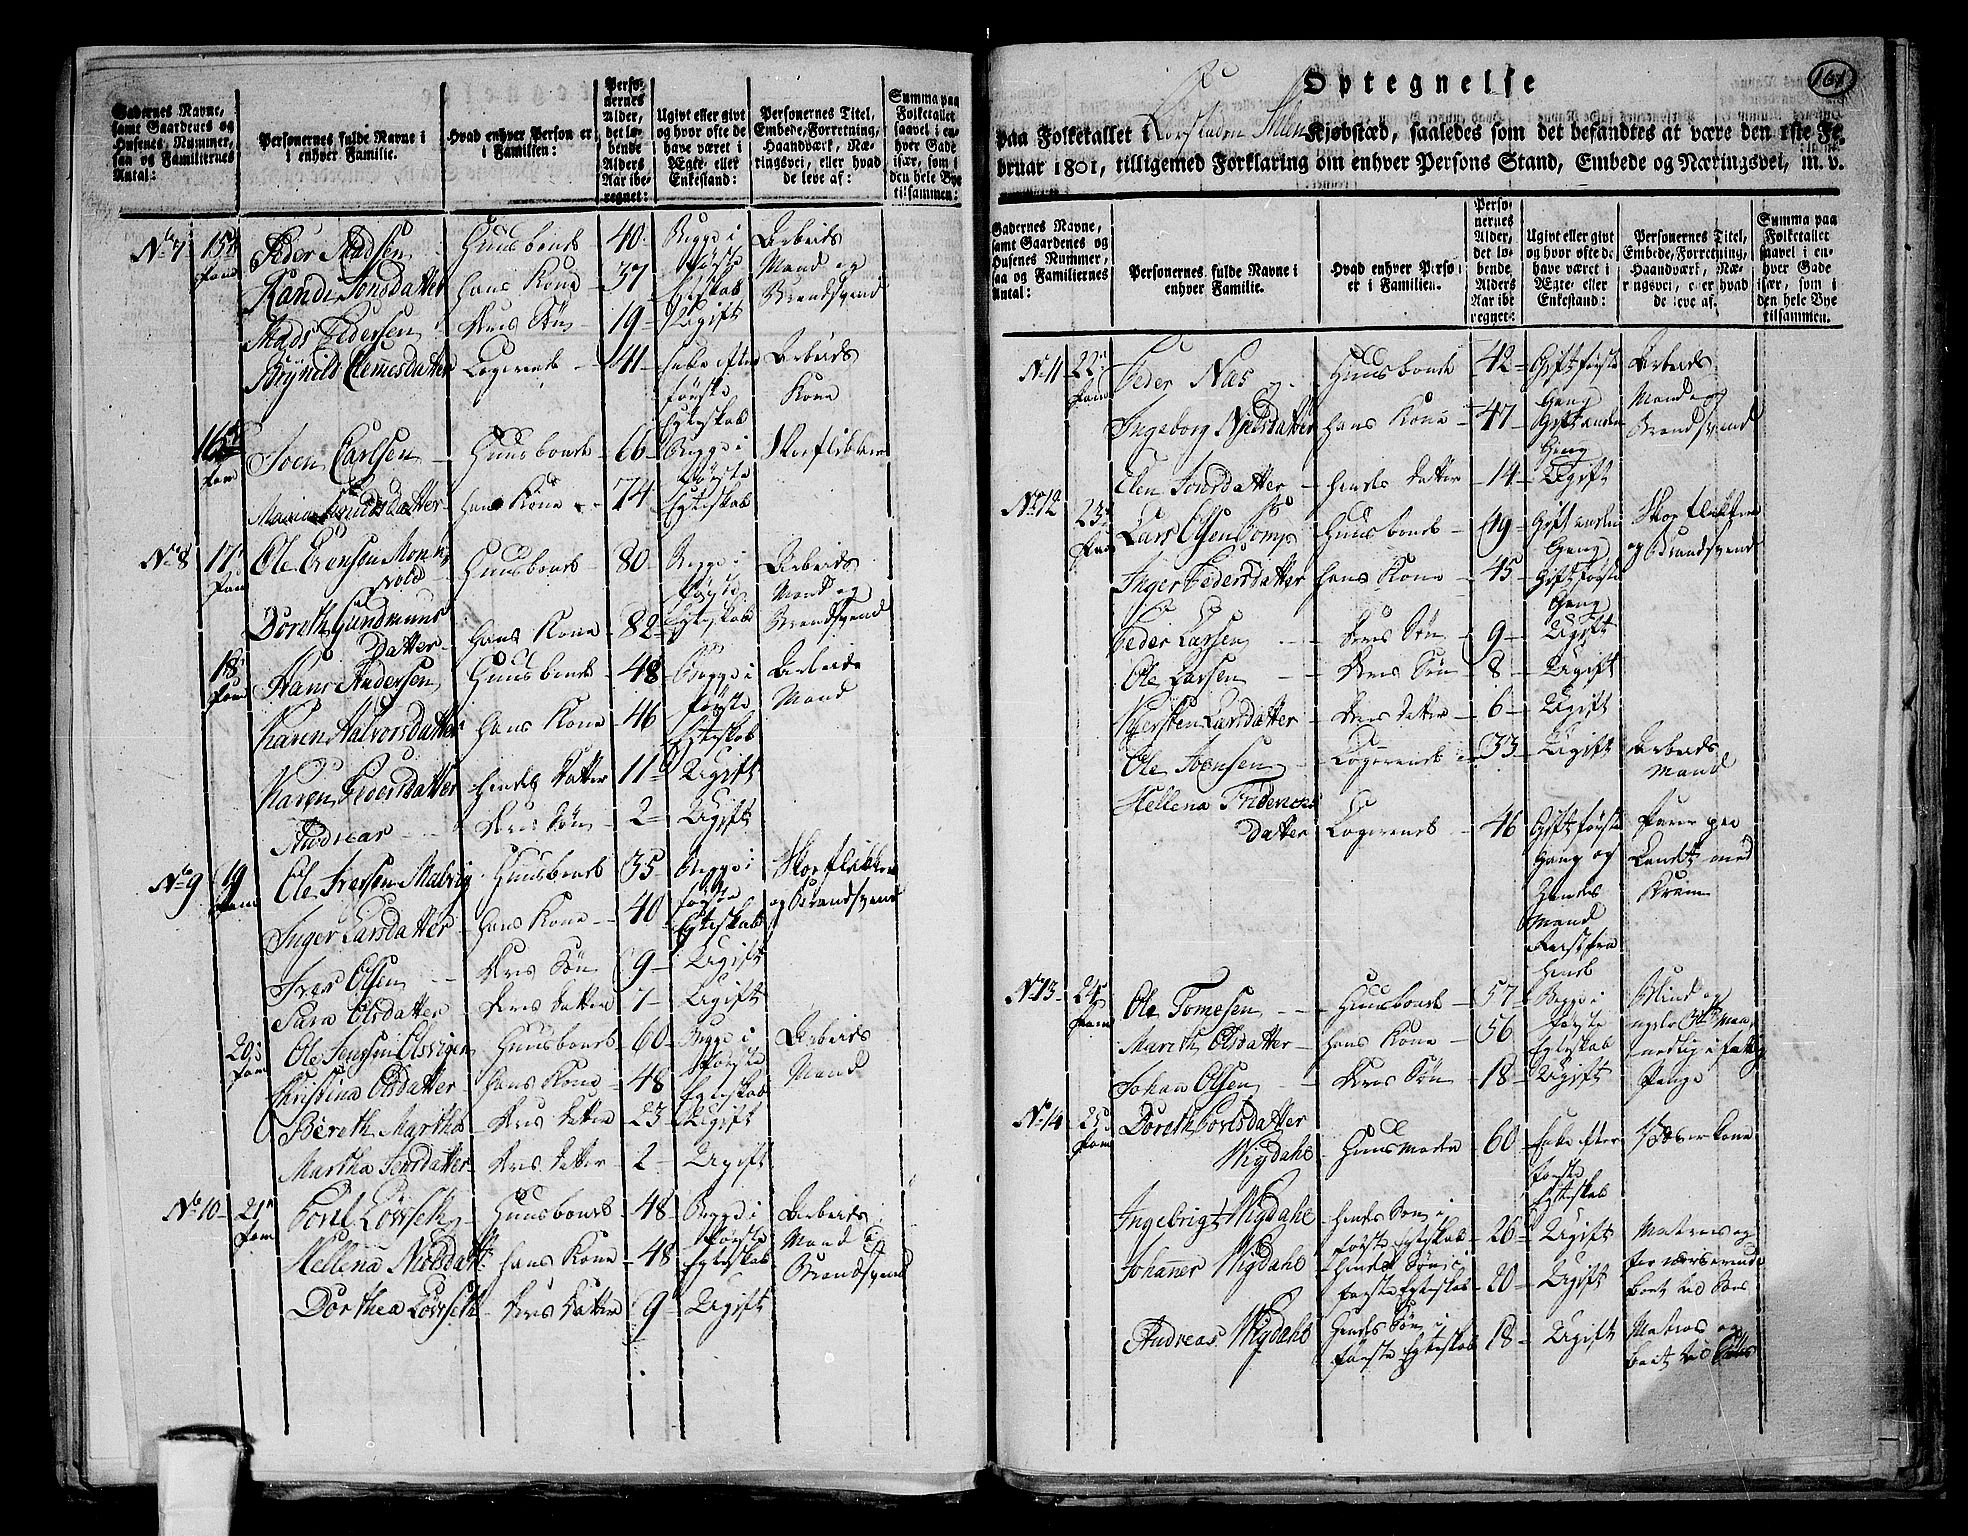 Gadernes Navne, samt Gaardenes og Husenes Nummer, saa og Familiernes Antal:
Personernes fulde Navne i i enhver Familie.
Hvad enhver Person er i Familien:
Personernes Alder, det løbende Alders Aar iberegnet:
Ugivt eller givt og hvor ofte de have været i Ægte- eller Enkestand:
Personernes Titel, Embede, Forretning, Haandværk, Næringsvei, eller hvad de leve af:
Summa paa Folketallet saavel i enhver Gade især, som i den hele Bye tilsammen:
No 7 15de fam Peder Madsen Huusbonde 40 Begge i første Egteskab Arbeids Mand og Brandsvend
Rande Jonsdatter hans Kone 37
Mads Pedersen deres Søn 19 Ugift
Brynild Clemesdatter Logerende 41 Enke efter første Egteskab Arbeids Kone
16de fam Joen Carlsen Huusbonde 66 Begge i første Egteskab Skoeflikker
Maria Knudsdatter hans Kone 74
No 8 17 fam Ole Evensen Monkvold Huusbonde 80 Begge i første Egteskab Arbeids Mand og Brandsvend
Doreth Gundmunds Datter hans Kone 82
18 fam Hans Andersen Huusbonde 48 Begge i første Egteskab Arbeids Mand
Karen Halvorsdatter hans Kone 46
Karen Pedersdatter hendes Datter 11 Ugift
Andreas deres Søn 2 Ugift
No 9 19 fam Ole Iversen Malvig Huusbonde 35 Begge i første Egteskab Skoeflikker og Brandsvend
Inger Larsdatter hans Kone 40
Iver Olsen deres Søn 9 Ugift
Sara Olsdatter deres Datter 7 Ugift
20 fam Ole Jensen Huusbonde 60 Begge i første Egteskab Arbeids Mand
Christina Olsdatter hans Kone 48
Bereth Martha deres Datter 23 Ugift
Martha Jensdatter deres Datter 2 Ugift
No 10 21 fam Poul Løvseth Huusbonde 48 Begge i første Egteskab Arbeids Mand Brandsvend
Hellena Nielsdatt: hans Kone 48
Dorthea Løvseth deres Datter 9 Ugift
161
Optegnelse
paa Folketallet i Kiøbstad, saaledes som det befandtes at være den 1ste Februar 1801, tilligemed Forklaring om enhver Persons Stand, Embede og Næringsvei, m. v.
Gadernes Navne, samt Gaardenes og Husenes Nummer, saa og Familiernes Antal:
Personernes fulde Navne i enhver Familie.
Hvad enhver Person er i Familien.
Personernes Alder, det løbende Alders Aar iberegnet:
Ugivt eller givt og hvor ofte de have været i Ægte- eller Enkestand:
Personernes Titel, Embede, Forretning, Haandværk, Næringsvei, eller hvad de leve af.
Summa paa Folketallet saavel i enhver Gade især, som i den hele Bye tilsammen.
No 11 22 fam Peder Nas Huusbonde 42 Gift første Gang Arbeids Mand og Brandsvend
Ingeborg Nielsdatter hans Kone 47 Gift anden Gang
Elen Jonsdatter hendes Datter 14 Ugift
No 12 23 fam Lars Olsen Huusbonde 49 Gift anden Gang Skoeflikker og Brandsvend
Inger Pedersdatter hans Kone 45 Gift første Gang
Peder Larsen deres Søn 9 Ugift
Ole Larsen deres Søn 8 Ugift
Kiersten Larsdatter deres Datter 6 Ugift
Ole Joensen Logerende 33 Ugift Arbeids Mand
Hellena Friderichs Datter Logerende 46 Gift første Gang og hendes Mand Reist fra hende Farer paa Landet med Kram
No 13 24 fam Ole Tomesen Huusbonde 57 Begge i første Egteskab Blind og
Mareth Olsdatter hans Kone 56
Johan Olsen deres Søn 18 Ugift
No 14 25 fam Doreth Povlsdatter Wigdahl Huusmoder 60 Enke efter første Egteskab
Ingebrigt Wigdahl hendes Søn i første Egteskab 26 Ugift Matros og for nærværende bort til Søes
Johanner Wigdahl hendes Søn i første Egteskab 20 Ugift
Andreas Wigdahl hendes Søn i første Egteskab 18 Ugift Matros og bort til Søes